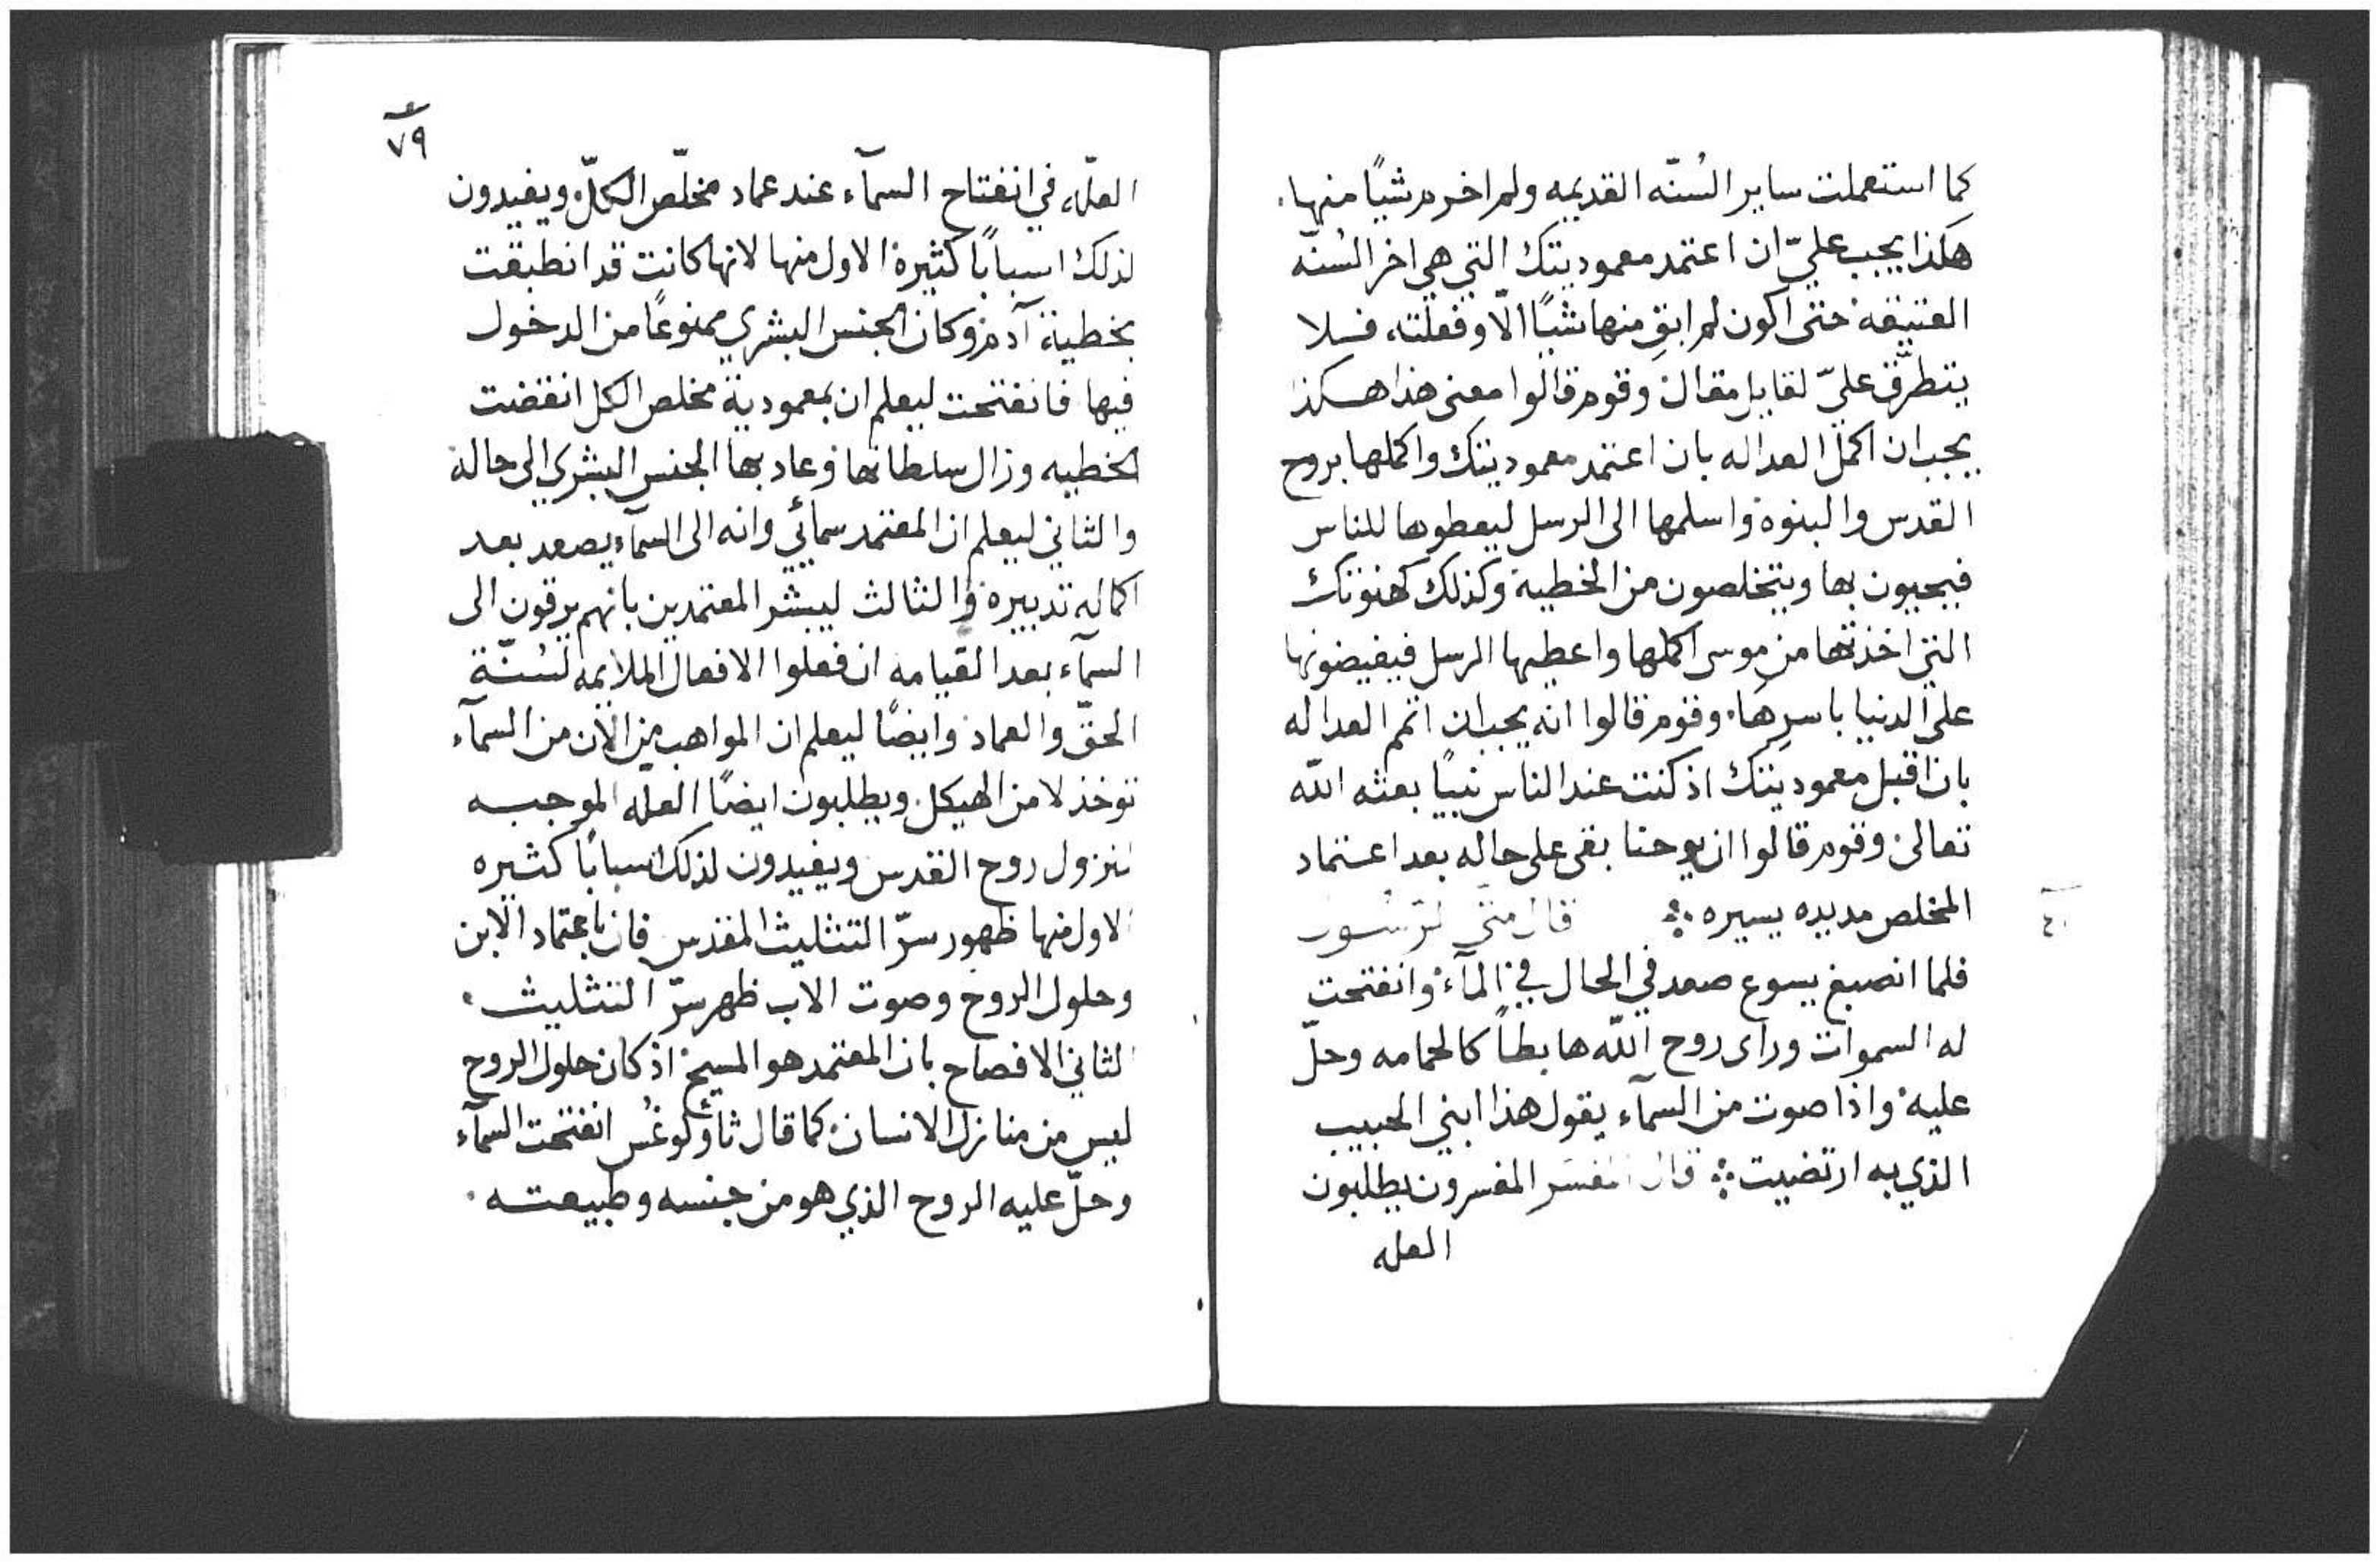 كما استعملت ساير السُنّه القديمه ولم اخرم شيًا منها.
هكذا يجب عليّ ان اعتمد معموديتك التي هي اخر السُنّه
العتيقه حتى اكون لم ابقِ منها شيًا الّا وفعلته، فلا
يتطرّق عليّ لقايل مقال وقوم قالوا معنى هذا هكذا
يجب ان اكمل العداله بان اعتمد معموديتك واكملها بروح
القدس والبنوة واسلمها الى الرسل ليعطوها للناس
فيحيون بها ويتخلصون من الخطية وكذلك كهنوتك
التي اخذتها من موسى اكملها واعطيها الرسل فيفيضونها
على الدنيا باسرِها. وقوم قالوا انه يجب ان اتمم العداله
بان اقبل معموديتك اذ كنت عند الناس نبيًا بعثه اللّه
تعالى وقوم قالوا ان يوحنا بقى على حاله بعد اعتماد
المخلص مديده يسيره
قال متى الرسول
٤٠
فلما انصبغ يسوع صعد في الحال في المآء وانفتحت
له السموات وراى روح اللّه هابطاً كالحمامه وحلّ
عليه واذا صوت من السمآء يقول هذا ابني الحبيب
الذي به ارتضيت قال المفسر المفسرون يطلبون
العله
٧٩
العلّه في انفتاح السمآء عند عماد مخلّص الكلّ ويفيدون
لذلك اسبابًا كثيرة الاول منها لانها كانت قد انطبقت
بخطية آدم وكان الجنس البشري ممنوعًا من الدخول
فيها فانفتحت ليعلم ان بمعمودية مخلص الكل انقضت
الخطيه وزال سلطانها وعاد بها الجنس البشري الى حاله
والثاني ليعلم ان المعتمد سمائي وانه الى السمآء يصعد بعد
اكماله تدبيره والثالث ليبشر المعتمدين بانهم يرقون الى
السمآء بعد القيامه ان فعلوا الافعال الملايمه لسُنّة
الحقّ والعماد وايضًا ليعلم ان المواهب من الان من السمآء
توخذ لا من الهيكل. ويطلبون ايضًا العله الموجبه
لنزول روح القدس ويفيدون لذلك اسبابًا كثيره
الاول منها ظهور سرّ التثليث المقدس فان باعتماد الابن
وحلول الروح وصوت الاب ظهر سرّ التثليث.
الثاني الافصاح بان المعتمد هو المسيح اذ كان حلول الروح
ليس من منازل الانسان كما قال ثاولوغُس انفتحت السمآء
وحلّ عليه الروح الذي هو من جنسه وطبيعته.